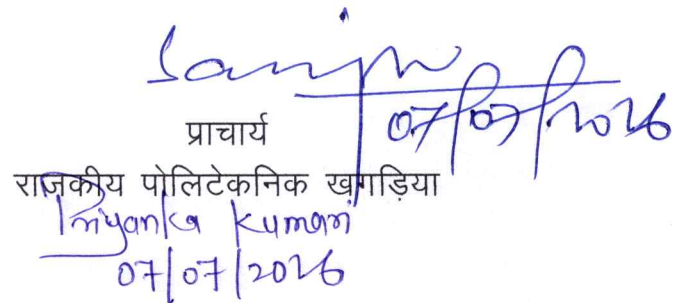 Sanjiv
07/07/2026
प्राचार्य
राजकीय पोलिटेकनिक खगड़िया
Priyanka Kumari
07/07/2026